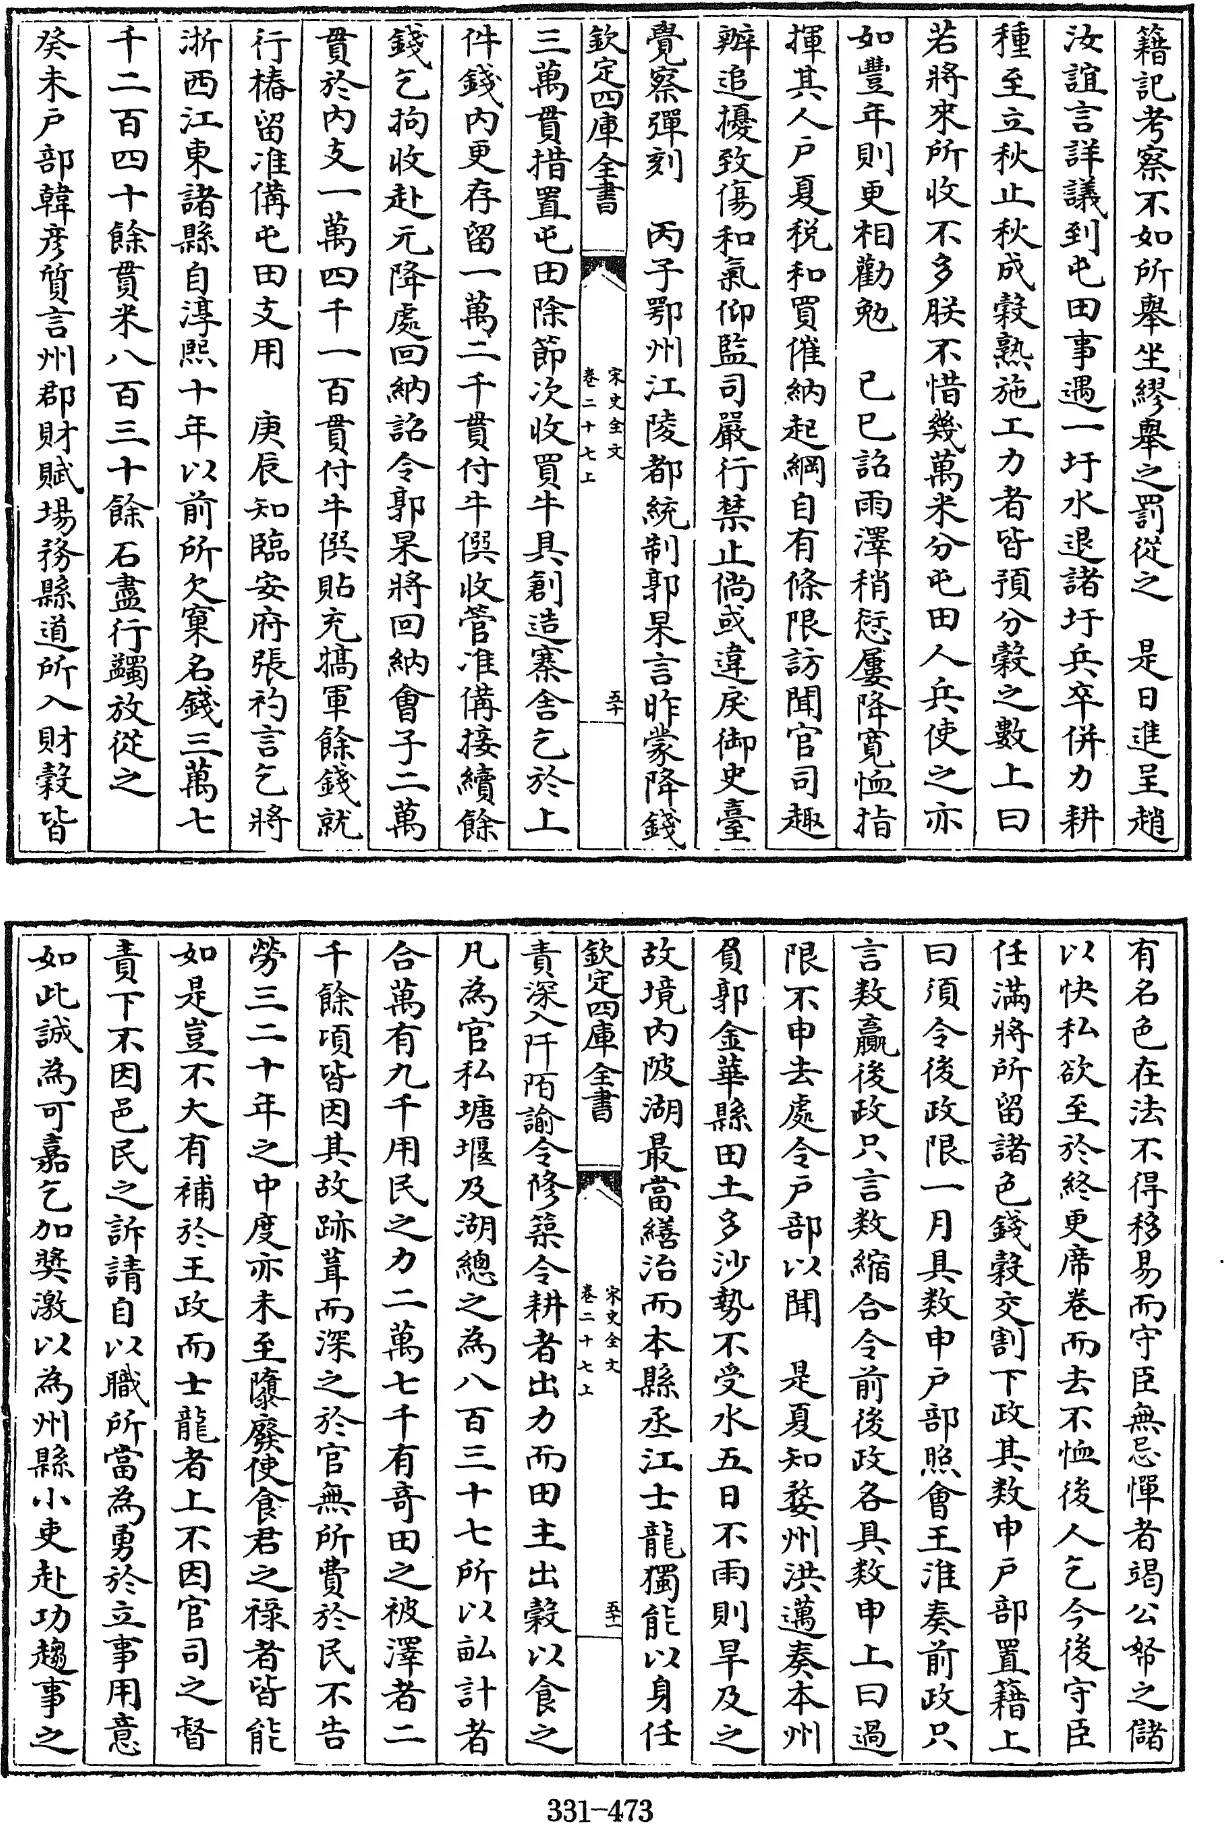 籍記考察不如所舉坐繆舉之罰從之　是日進呈趙
汝誼言詳議到屯田事遇一圩水退諸圩兵卒併力耕
種至立秋止秋成穀熟施工力者皆預分穀之數上曰
若將來所收不多朕不惜幾萬米分屯田人兵使之亦
如豐年則更相勸勉　己巳詔雨澤稍愆屢降寛恤指
揮其人户夏税和買催納起綱自有條限訪聞官司趣
辦追擾致傷和氣仰監司嚴行禁止倘或違戾御史臺
覺察彈刻　丙子鄂州江陵都統制郭杲言昨蒙降錢
欽定四庫全書
宋史全文
卷二十七上
五十
三萬貫措置屯田除節次收買牛具創造寨舍乞於上
件錢内更存留一萬二千貫付牛僎收管准備接續餘
錢乞拘收赴元降處回納詔令郭杲將回納會子二萬
貫於内支一萬四千一百貫付牛僎貼充犒軍餘錢就
行樁留准備屯田支用　庚辰知臨安府張杓言乞將
浙西江東諸縣自淳熙十年以前所欠窠名錢三萬七
千二百四十餘貫米八百三十餘石盡行蠲放從之
癸未戶部韓彦質言州郡財賦場務縣道所入財穀皆
有名色在法不得移易而守臣無忌憚者竭公帑之儲
以快私欲至於終更席卷而去不恤後人乞今後守臣
任滿將所留諸色錢穀交割下政其數申戸部置籍上
曰須令後政限一月具數申戸部照會王淮奏前政只
言數贏後政只言數縮合令前後政各具數申上曰過
限不申去處令戸部以聞　是夏知婺州洪邁奏本州
負郭金華縣田土多沙勢不受水五日不雨則旱及之
故境内陂湖最當繕治而本縣丞江士龍獨能以身任
欽定四庫全書
宋史全文
卷二十七上
五十一
責深入阡陌諭令修築令耕者出力而田主出穀以食之
凡為官私塘堰及湖總之為八百三十七所以畆計者
合萬有九千用民之力二萬七千有奇田之被澤者二
千餘頃皆因其故跡葺而深之於官無所費於民不告
勞三二十年之中度亦未至隳廢使食君之禄者皆能
如是豈不大有補於王政而士龍者上不因官司之督
責下不因邑民之訴請自以職所當為勇於立事用意
如此誠為可嘉乞加奬激以為州縣小吏赴功趨事之
331-473